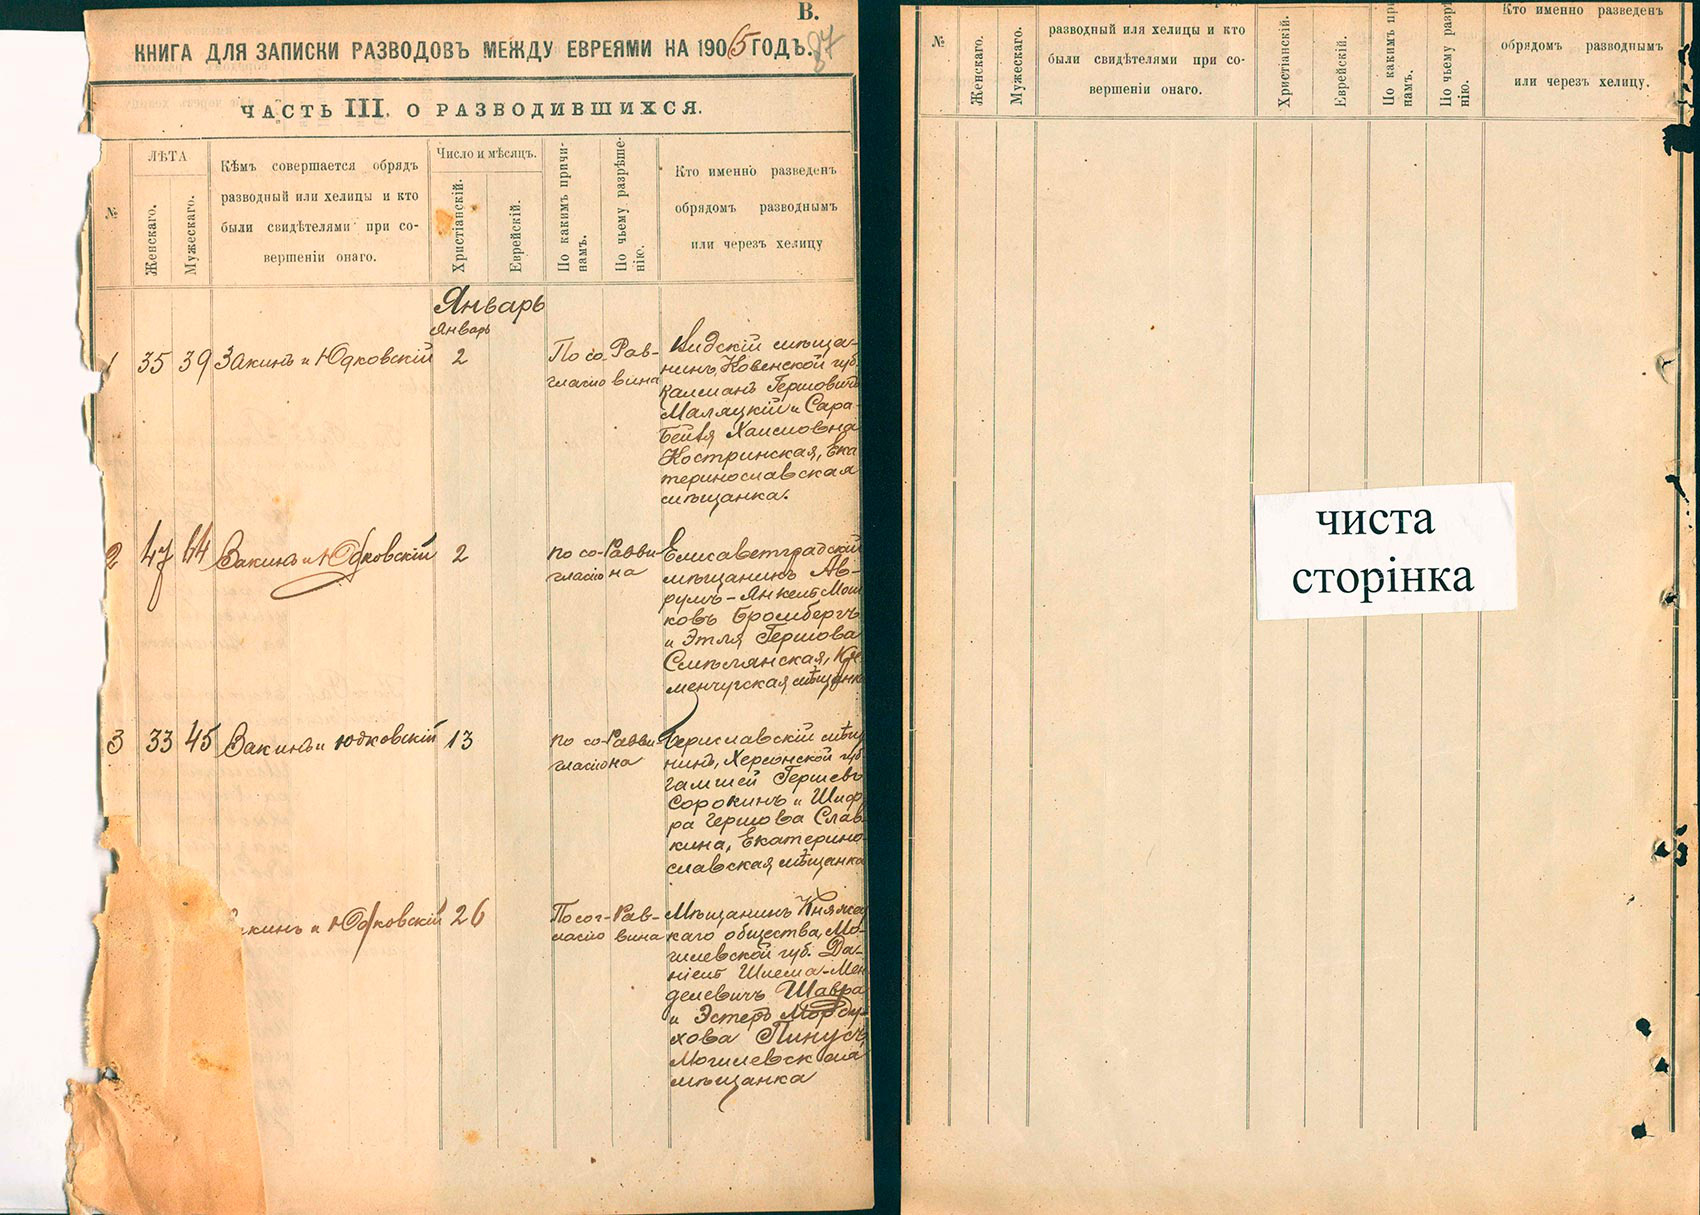 В.
КНИГА ДЛЯ ЗАПИСКИ РАЗВОДОВЪ МЕЖДУ ЕВРЕЯМИ НА 1905 ГОДЪ.
87
ЧАСТЬ III. О РАЗВОДИВШИХСЯ.
№
ЛѢТА
Женскаго.
Мужескаго.
Кѣмъ совершается обрядъ
разводный или хелицы и кто
были свидѣтелями при со-
вершеніи онаго.
Число и мѣсяцъ.
Христіанскій.
Еврейскій.
По какимъ причи-
намъ.
По чьему разрѣше-
нію.
Кто именно разведенъ
обрядомъ разводнымъ
или черезъ хелицу
Январь
Январь
1 35 39 Закинъ и Юдковскій 2
По со-
гласію
Рав-
вина
Видскій мѣща-
нинъ, Ковенской губ.
Калманъ Гершовичъ
Маляцкій и Сара
Бейля Хаимовна
Костринская, Ека
теринославская
мѣщанка.
2 47 44 Закинъ и Юдковскій 2
по со-
гласію
Равви-
на
Елисаветградскій
мѣщанинъ Ав-
румъ-Янкель Мош
ковъ Бромбергъ
и Этля Гершова
Смѣлянская, Кре
менчугская мѣщанка
3 33 45 Закинъ и Юдковскій 13
по со-
гласію
Равви-
на
Бериславскій мѣщ
нинъ, Херсонской губ
Гамшей Гершевъ
Сорокинъ и Шиф
ра Гершова Слав
кина, Екатерино-
славская мѣщанка
акинъ и Юдковскій 26
По сог-
ласію
Рав-
вина
Мѣщанинъ Княжи
каго общества, Мо-
гилевской губ. Да-
ніель Шлема-Мен
делевичъ Шавра
и Эстеръ Морду-
хова Пинусъ,
Могилевская
мѣщанка
№
Женскаго.
Мужескаго.
разводный или хелицы и кто
были свидѣтелями при со-
вершеніи онаго.
Христіанскій.
Еврейскій.
По какимъ при
намъ.
По чьему разрѣ
нію.
Кто именно разведенъ
обрядомъ разводнымъ
или черезъ хелицу.
чиста
сторінка